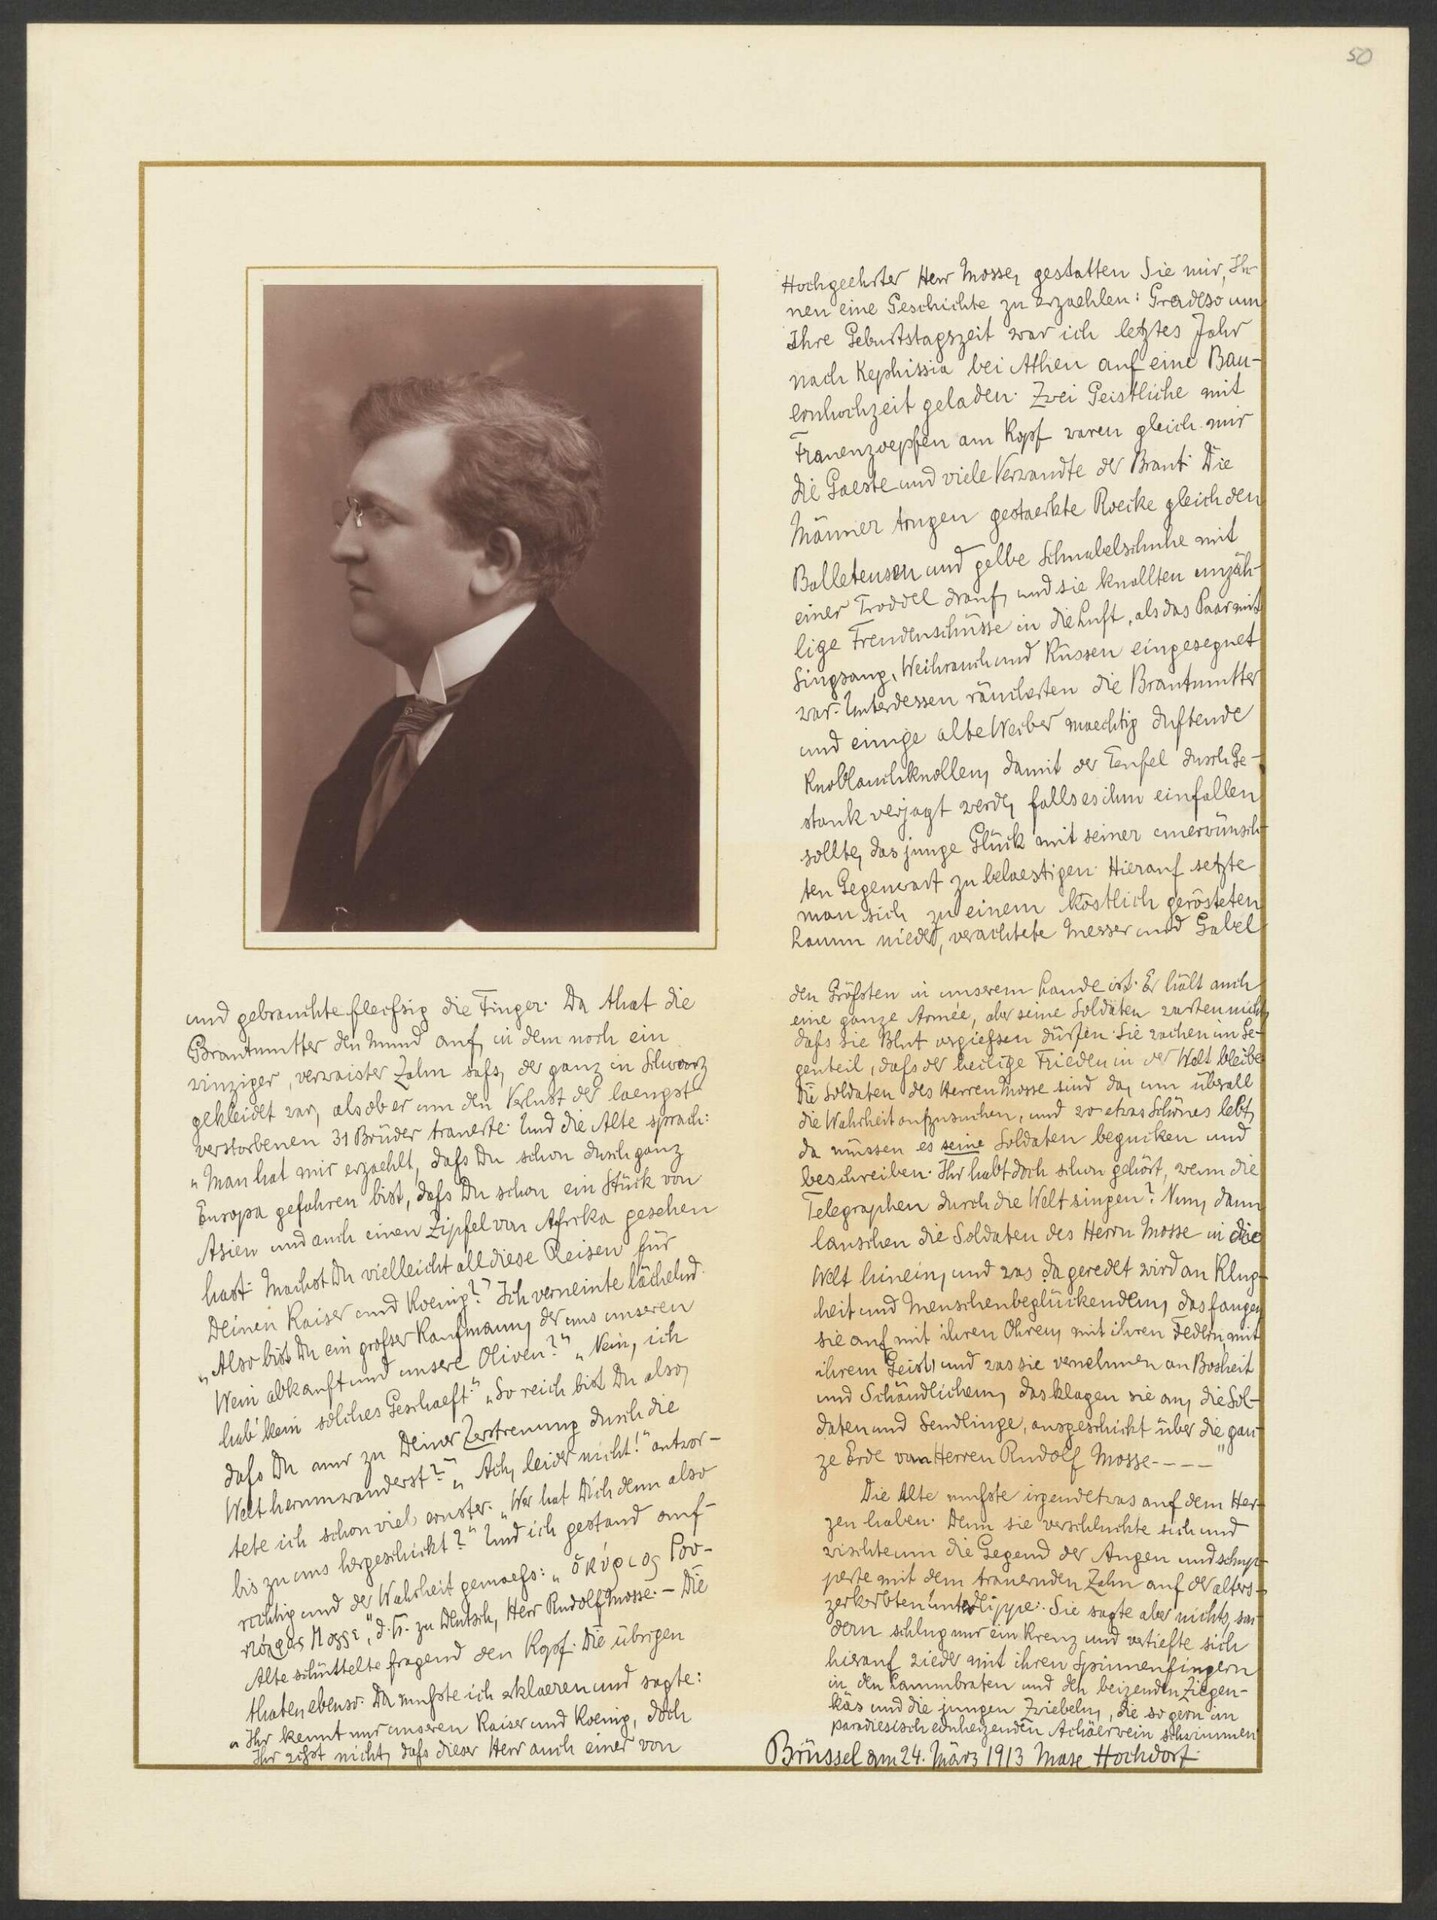 50
Hochgeehrter Herr Mosse, gestatten Sie mir, Ih-
nen eine Geschichte zu erzaehlen: Gradeso um
Ihre Geburtstagszeit war ich letztes Jahr
nach Kephissia bei Athen auf eine Bau-
ernhochzeit geladen. Zwei Geistliche mit
Frauenzoepfen am Kopf waren gleich mir
die Gaeste und viele Verwandte der Braut. Die
Männer trugen gestaerkte Roecke gleich den
Balleteusen und gelbe Schnabelschuhe mit
einer Troddel drauf, und sie knallten unzäh-
lige Freudenschüsse in die Luft, als das Paar mit
Singsang, Weihrauch und Küssen eingesegnet
war. Unterdessen räucherten die Brautmutter
und einige alte Weiber maechtig duftende
Knoblauchknollen, damit der Teufel durch Ge-
stank verjagt werde, falls es ihm einfallen
sollte, das junge Glück mit seiner unerwünsch-
ten Gegenwart zu belaestigen. Hierauf setzte
man sich zu einem köstlich gerösteten
Lamm nieder, verachtete Messer und Gabel
und gebrauchte fleifsig die Finger. Da that die
Brautmutter den Mund auf, in dem noch ein
winziger, verwaister Zahn safs, der ganz in Schwarz
gekleidet war, als ob er um den Verlust der laengst
verstorbenen 31 Brüder trauerte. Und die Alte sprach:
„Man hat mir erzaehlt, dafs Du schon durch ganz
Europa gefahren bist, dafs Du schon ein Stück von
Asien und auch einen Zipfel von Afrika gesehen
hast. Machst Du vielleicht all diese Reisen für
Deinen Kaiser und Koenig?" Ich verneinte lächelnd.
„Also bist Du ein grofser Kaufmann, der uns unseren
Wein abkauft und unsere Oliven?" „Nein, ich
hab' kein solches Geschaeft." „So reich bist Du also,
dafs Du nur zu Deiner Zerstreuung durch die
Welt herumwanderst?" „Ach, leider nicht!" antwor-
tete ich schon viel ernster. „Wer hat Dich denn also
bis zu uns hergeschickt?" Und ich gestand auf-
richtig und der Wahrheit gemaefs: „ὁ κύριος Ρου-
Mosse", d. h. zu Deutsch, Herr Rudolf Mosse. — Die
Alte schüttelte fragend den Kopf. Die übrigen
thaten ebenso. Da mufste ich erklaeren und sagte:
„Ihr kennt nur unseren Kaiser und Koenig, doch
Ihr wifst nicht, dafs dieser Herr auch einer von
den Gröfsten in unserem Lande ist. Er hält auch
eine ganze Armée, aber seine Soldaten warten nicht,
dafs sie Blut vergiefsen dürfen. Sie wachen im Ge-
genteil, dafs der heilige Frieden in der Welt bleibe.
Die Soldaten des Herren Mosse sind da, um überall
die Wahrheit aufzusuchen, und wo etwas Schönes lebt,
da müssen es seine Soldaten begucken und
beschreiben. Ihr habt doch schon gehört, wenn die
Telegraphen durch die Welt singen? Nun, dann
lauschen die Soldaten des Herrn Mosse in die
Welt hinein, und was da geredet wird an Klug-
heit und Menschenbeglückendem, das fangen
sie auf mit ihren Ohren, mit ihren Federn, mit
ihrem Geist, und was sie vernehmen an Bosheit
und Schändlichem, das klagen sie an, die Sol-
daten und Sendlinge, ausgeschickt über die gan-
ze Erde von Herren Rudolf Mosse - - - - "
Die Alte mufste irgendetwas auf dem Her-
zen haben. Denn sie verschluchte sich und
wischte um die Gegend der Augen und schnup-
perte mit dem trauernden Zahn auf der alters-
zerkerbten Unterlippe. Sie sagte aber nichts, son-
dern schlug nur ein Kreuz und vertiefte sich
hierauf wieder mit ihren Spinnenfingern
in den Lammbraten und den beizenden Ziegen-
käs und die jungen Zwiebeln, die so gern im
paradiesisch einheizenden Achäerwein schwimmen.
Brüssel am 24. März 1913 Max Hochdorf.